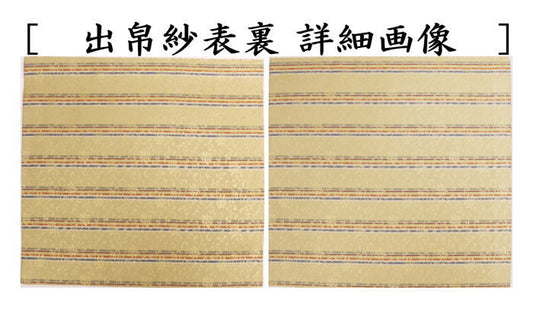 [ 出帛紗表裏 詳細画像 ]